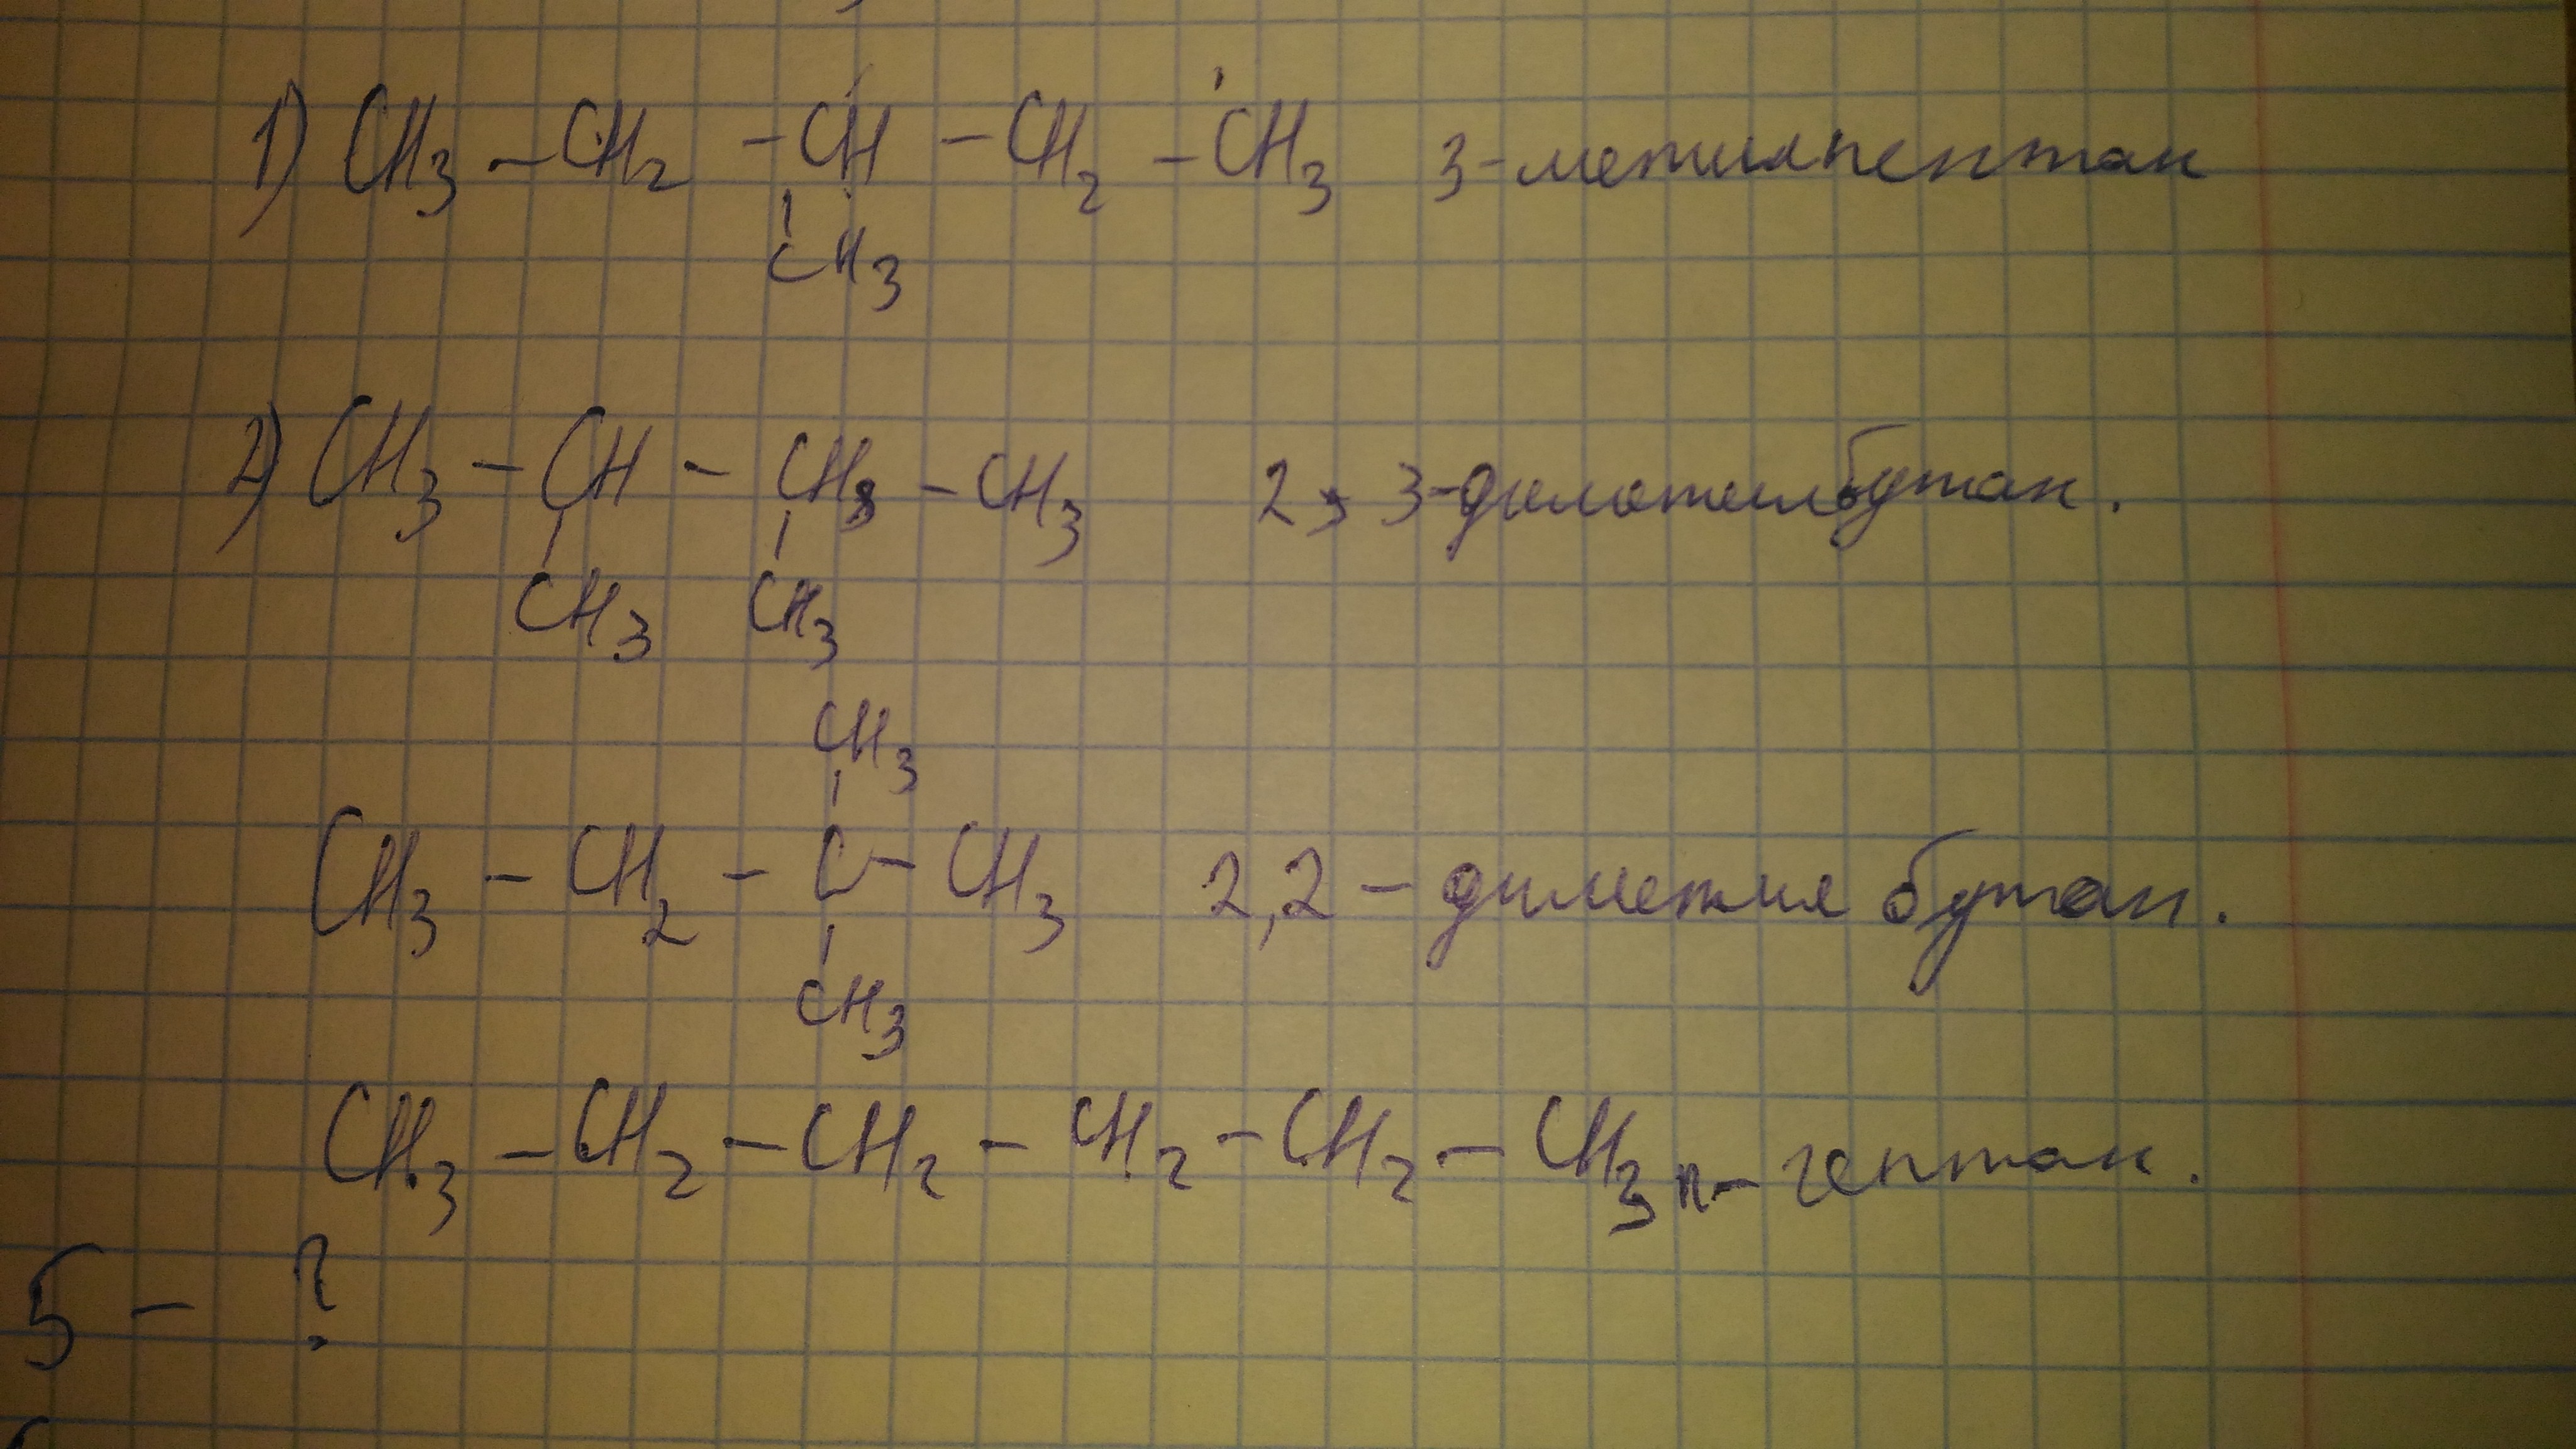 1) CH3 - CH2 - CH - CH2 - CH3 3-метилпентан
CH3
2) CH3 - CH - CH - CH3 2,3-диметилбутан.
CH3 CH3
CH3
CH3 - CH2 - C - CH3 2,2 - диметил бутан.
CH3
CH3 - CH2 - CH2 - CH2 - CH2 - CH3 n - гептан.
5 - ?